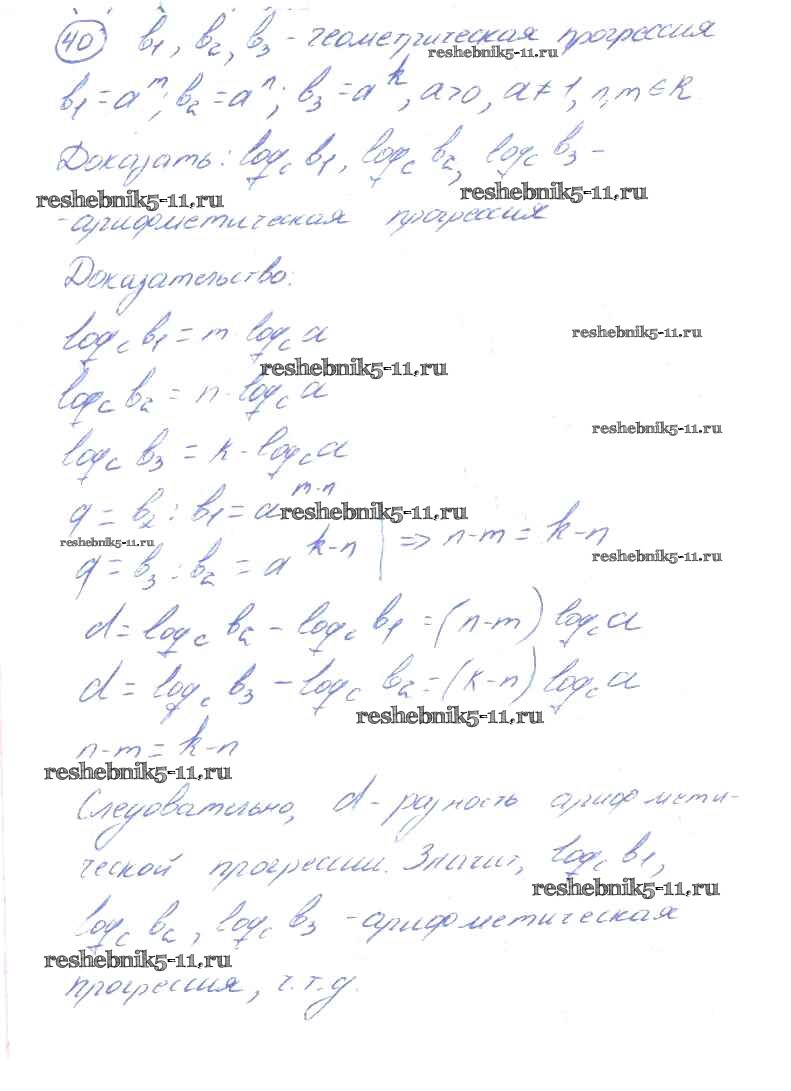 40) b₁, b₂, b₃ - геометрическая прогрессия
reshebnik5-11.ru
b₁=aᵐ; b₂=aⁿ; b₃=aᵏ, a>0, a≠1, n,m∈R
Доказать: log_c b₁, log_c b₂, log_c b₃ -
reshebnik5-11.ru reshebnik5-11.ru
-арифметическая прогрессия
Доказательство:
log_c b₁ = m·log_c a
reshebnik5-11.ru
reshebnik5-11.ru
log_c b₂ = n·log_c a
reshebnik5-11.ru
log_c b₃ = k·log_c a
q = b₂ : b₁ = a^(m-n)
reshebnik5-11.ru
reshebnik5-11.ru
q = b₃ : b₂ = a^(k-n) | => n-m = k-n
reshebnik5-11.ru
d = log_c b₂ - log_c b₁ = (n-m) log_c a
d = log_c b₃ - log_c b₂ = (k-n) log_c a
reshebnik5-11.ru
n-m = k-n
reshebnik5-11.ru
Следовательно, d - разность арифмети-
ческой прогрессии. Значит, log_c b₁,
reshebnik5-11.ru
log_c b₂, log_c b₃ - арифметическая
reshebnik5-11.ru
прогрессия, ч.т.д.